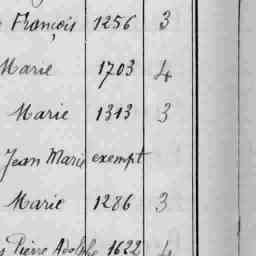 François 1256 3
Marie 1703 4
Marie 1313 3
Jean Marie exempt
Marie 1286 3
Pierre Adolphe 1622 4